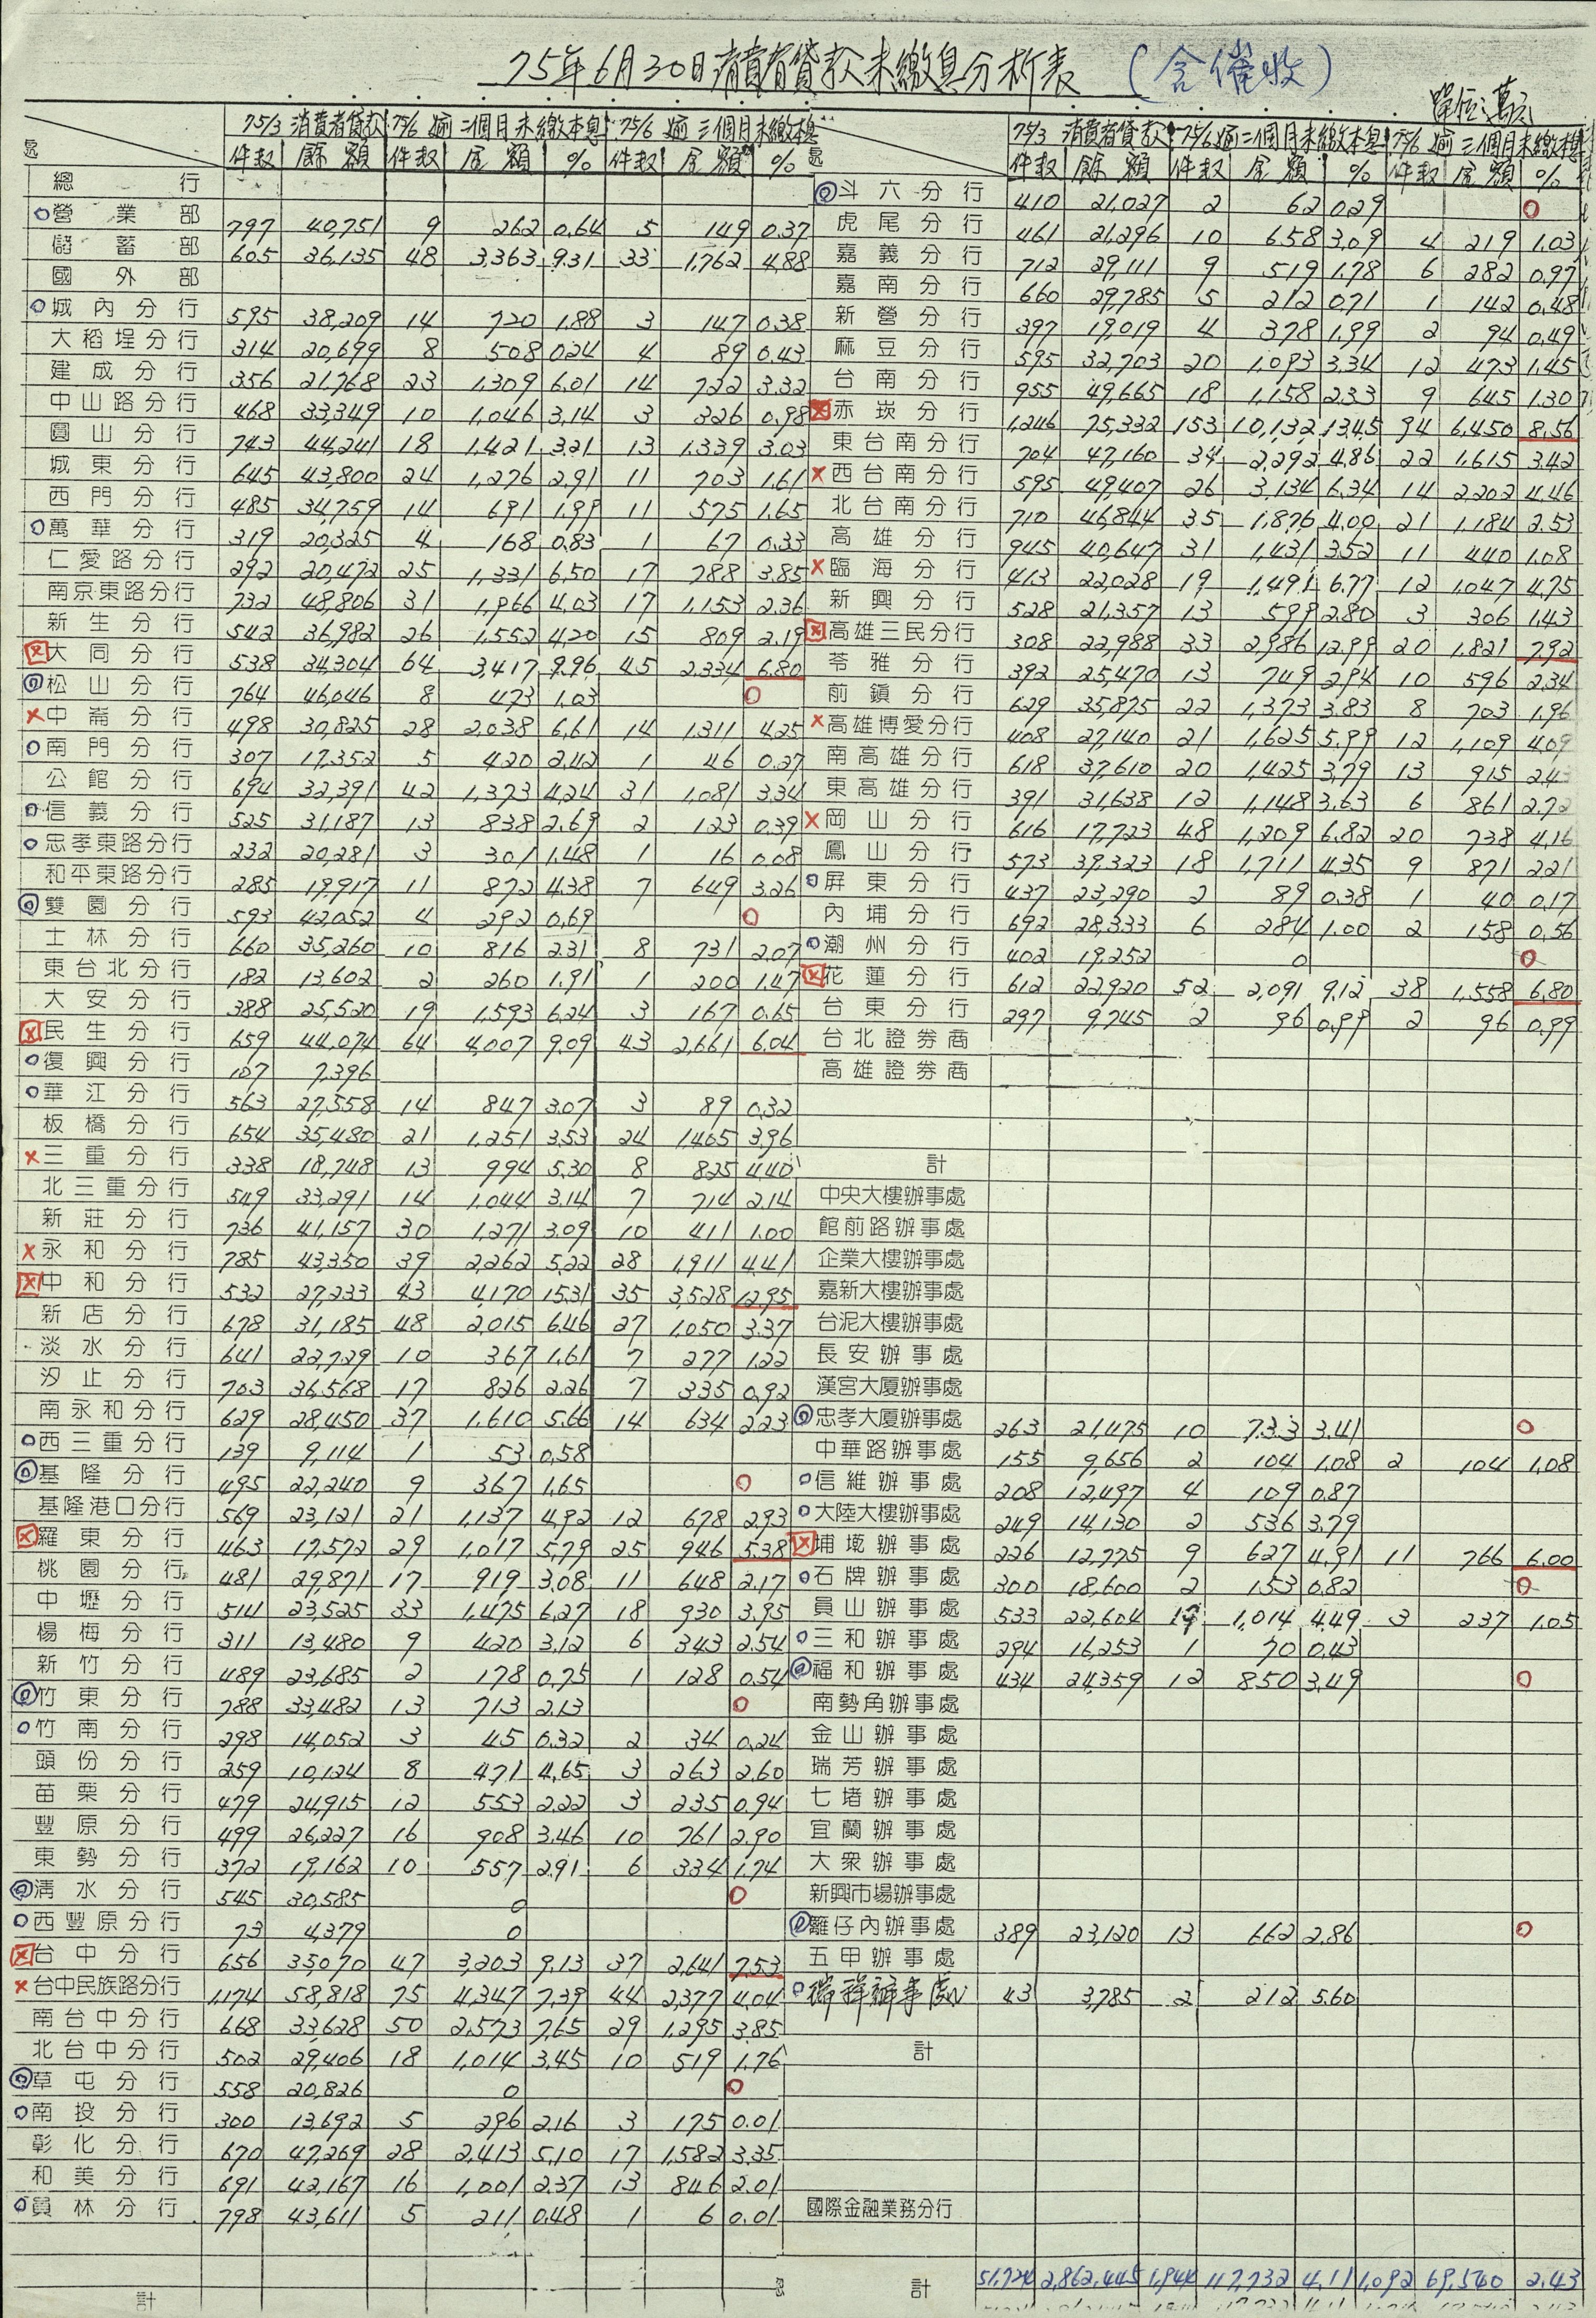 75年6月30日消費者貸款未繳息分析表 (含催收)
單位:萬元
75/3 消費者貸款 75/6 逾二個月未繳本息 75/6 逾三個月未繳本息
處 件數 餘額 件數 金額 % 件數 金額 %
總行
營業部 797 40,751 9 262 0.64 5 149 0.37
儲蓄部 605 36,135 48 3,363 9.31 33 1,762 4.88
國外部
城內分行 595 38,209 14 720 1.88 3 147 0.38
大稻埕分行 314 20,699 8 508 0.24 4 89 0.43
建成分行 356 21,768 23 1,309 6.01 14 722 3.32
中山路分行 468 33,349 10 1,046 3.14 3 326 0.98
圓山分行 743 44,241 18 1,421 3.21 13 1,339 3.03
城東分行 645 43,800 24 1,276 2.91 11 703 1.61
西門分行 485 34,759 14 691 1.99 11 575 1.65
萬華分行 319 20,325 4 168 0.83 1 67 0.33
仁愛路分行 292 20,472 25 1,331 6.50 17 788 3.85
南京東路分行 732 48,806 31 1,966 4.03 17 1,153 2.36
新生分行 542 36,982 26 1,552 4.20 15 809 2.19
大同分行 538 34,304 64 3,417 9.96 45 2,334 6.80
松山分行 764 46,046 8 473 1.03 0
中崙分行 498 30,825 28 2,038 6.61 14 1,311 4.25
南門分行 307 17,352 5 420 2.42 1 46 0.27
公館分行 694 32,391 42 1,373 4.24 31 1,081 3.34
信義分行 525 31,187 13 838 2.69 2 123 0.39
忠孝東路分行 232 20,281 3 301 1.48 1 16 0.08
和平東路分行 285 19,917 11 872 4.38 7 649 3.26
雙園分行 593 42,052 4 292 0.69 0
士林分行 660 35,260 10 816 2.31 8 731 2.07
東台北分行 182 13,602 2 260 1.91 1 200 1.47
大安分行 388 25,520 19 1,593 6.24 3 167 0.65
民生分行 659 44,074 64 4,007 9.09 43 2,661 6.04
復興分行 107 7,396
華江分行 563 27,558 14 847 3.07 3 89 0.32
板橋分行 654 35,480 21 1,251 3.53 24 1,405 3.96
三重分行 338 18,748 13 994 5.30 8 825 4.40
北三重分行 549 33,291 14 1,044 3.14 7 714 2.14
新莊分行 736 41,157 30 1,271 3.09 10 411 1.00
永和分行 785 43,350 39 2,262 5.22 28 1,911 4.41
中和分行 532 27,233 43 4,170 15.31 35 3,528 12.95
新店分行 678 31,185 48 2,015 6.46 27 1,050 3.37
淡水分行 641 22,729 10 367 1.61 7 277 1.22
汐止分行 703 36,568 17 826 2.26 7 335 0.92
南永和分行 629 28,450 37 1,610 5.66 14 634 2.23
西三重分行 139 9,114 1 53 0.58
基隆分行 495 22,240 9 367 1.65 0
基隆港口分行 569 23,121 21 1,137 4.92 12 678 2.93
羅東分行 463 17,572 29 1,017 5.79 25 946 5.38
桃園分行 481 29,871 17 919 3.08 11 648 2.17
中壢分行 514 23,525 33 1,475 6.27 18 930 3.95
楊梅分行 311 13,480 9 420 3.12 6 343 2.54
新竹分行 489 23,685 2 178 0.75 1 128 0.54
竹東分行 788 33,482 13 713 2.13 0
竹南分行 298 14,052 3 45 0.32 2 34 0.24
頭份分行 259 10,124 8 471 4.65 3 263 2.60
苗栗分行 479 24,915 12 553 2.22 3 235 0.94
豐原分行 499 26,227 16 908 3.46 10 761 2.90
東勢分行 372 19,162 10 557 2.91 6 334 1.74
清水分行 545 30,585 0 0
西豐原分行 73 4,379 0
台中分行 656 35,070 47 3,203 9.13 37 2,641 7.53
台中民族路分行 1,174 58,818 75 4,347 7.39 44 2,377 4.04
南台中分行 668 33,628 50 2,573 7.65 29 1,295 3.85
北台中分行 502 29,406 18 1,014 3.45 10 519 1.76
草屯分行 558 20,826 0 0
南投分行 300 13,692 5 296 2.16 3 175 0.01
彰化分行 670 47,269 28 2,413 5.10 17 1,582 3.35
和美分行 691 42,167 16 1,001 2.37 13 846 2.01
員林分行 798 43,611 5 211 0.48 1 6 0.01
計
75/3 消費者貸款 75/6 逾二個月未繳本息 75/6 逾三個月未繳本息
處 件數 餘額 件數 金額 % 件數 金額 %
斗六分行 410 21,027 2 62 0.29 0
虎尾分行 461 21,296 10 658 3.09 4 219 1.03
嘉義分行 712 29,111 9 519 1.78 6 282 0.97
嘉南分行 660 29,785 5 212 0.71 1 142 0.48
新營分行 397 19,019 4 378 1.99 2 94 0.49
麻豆分行 595 32,703 20 1,093 3.34 12 473 1.45
台南分行 955 49,665 18 1,158 2.33 9 645 1.30
赤崁分行 1,246 75,332 153 10,132 13.45 94 6,450 8.56
東台南分行 704 47,160 34 2,292 4.86 22 1,615 3.42
西台南分行 595 49,407 26 3,134 6.34 14 2,202 4.46
北台南分行 710 46,844 35 1,876 4.00 21 1,184 2.53
高雄分行 945 40,647 31 1,431 3.52 11 440 1.08
臨海分行 413 22,028 19 1,491 6.77 12 1,047 4.75
新興分行 528 21,357 13 599 2.80 3 306 1.43
高雄三民分行 308 22,988 33 2,986 12.99 20 1,821 7.92
苓雅分行 392 25,470 13 749 2.94 10 596 2.34
前鎮分行 629 35,875 22 1,373 3.83 8 703 1.96
高雄博愛分行 408 27,140 21 1,625 5.99 12 1,109 4.09
南高雄分行 618 37,610 20 1,425 3.79 13 915 2.43
東高雄分行 391 31,638 12 1,148 3.63 6 861 2.72
岡山分行 616 17,723 48 1,209 6.82 20 738 4.16
鳳山分行 573 39,323 18 1,711 4.35 9 871 2.21
屏東分行 437 23,290 2 89 0.38 1 40 0.17
內埔分行 692 28,333 6 284 1.00 2 158 0.56
潮州分行 402 19,252 0 0
花蓮分行 612 22,920 52 2,091 9.12 38 1,558 6.80
台東分行 297 9,745 2 96 0.99 2 96 0.99
台北證券商
高雄證券商
計
中央大樓辦事處
館前路辦事處
企業大樓辦事處
嘉新大樓辦事處
台泥大樓辦事處
長安辦事處
漢宮大廈辦事處
忠孝大廈辦事處 263 21,475 10 733 3.41 0
中華路辦事處 155 9,656 2 104 1.08 2 104 1.08
信維辦事處 208 12,497 4 109 0.87
大陸大樓辦事處 249 14,130 2 536 3.79
埔墘辦事處 226 12,775 9 627 4.91 11 766 6.00
石牌辦事處 300 18,600 2 153 0.82 0
員山辦事處 533 22,604 19 1,014 4.49 3 237 1.05
三和辦事處 294 16,253 1 70 0.43
福和辦事處 434 24,359 12 850 3.49 0
南勢角辦事處
金山辦事處
瑞芳辦事處
七堵辦事處
宜蘭辦事處
大眾辦事處
新興市場辦事處
籬仔內辦事處 389 23,120 13 662 2.86 0
五甲辦事處
瑞祥辦事處 43 3,785 2 212 5.60
計
國際金融業務分行
總計 51,724 2,862,445 1,944 117,732 4.11 1,092 69,540 2.43